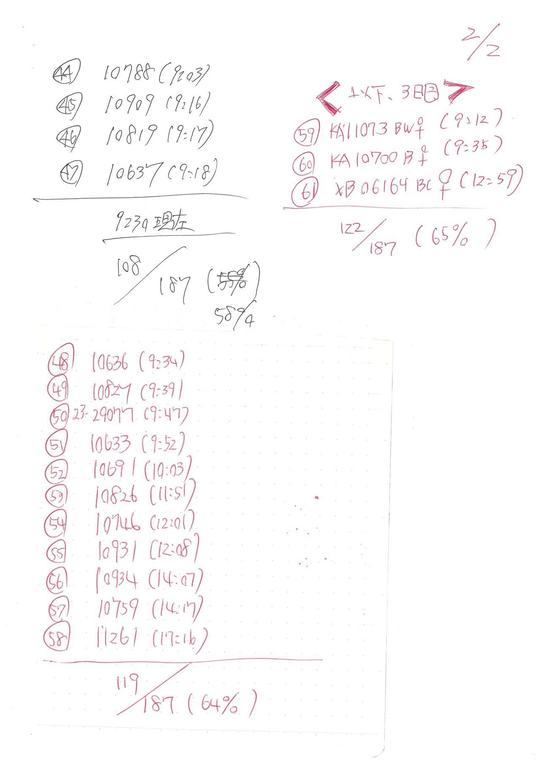 2/2
㊹ 10788 (9:03)
㊺ 10909 (9:16)
㊻ 10819 (9:17)
㊼ 10637 (9:18)
9230現在
108/187 (55%)
58%
㊽ 10636 (9:34)
㊾ 10827 (9:39)
㊿ 23-29077 (9:47)
51 10633 (9:52)
52 10691 (10:03)
53 10826 (11:51)
54 10746 (12:01)
55 10931 (12:08)
56 10934 (14:07)
57 10759 (14:17)
58 11261 (17:16)
119/187 (64%)
<以下、3日目>
59 KA11073 BW♀ (9:12)
60 KA10700 B♀ (9:35)
61 XB06164 BC♀ (12:59)
122/187 (65%)